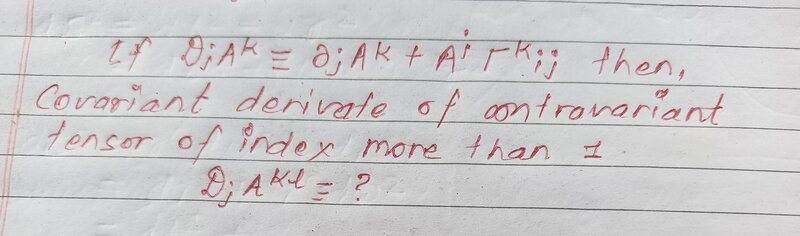 If DjAᴷ ≡ ∂jAᴷ + Aʲ Γᴷij then,
Covariant derivate of contravariant
tensor of index more than 1
Dj Aᴷˡ ≡ ?